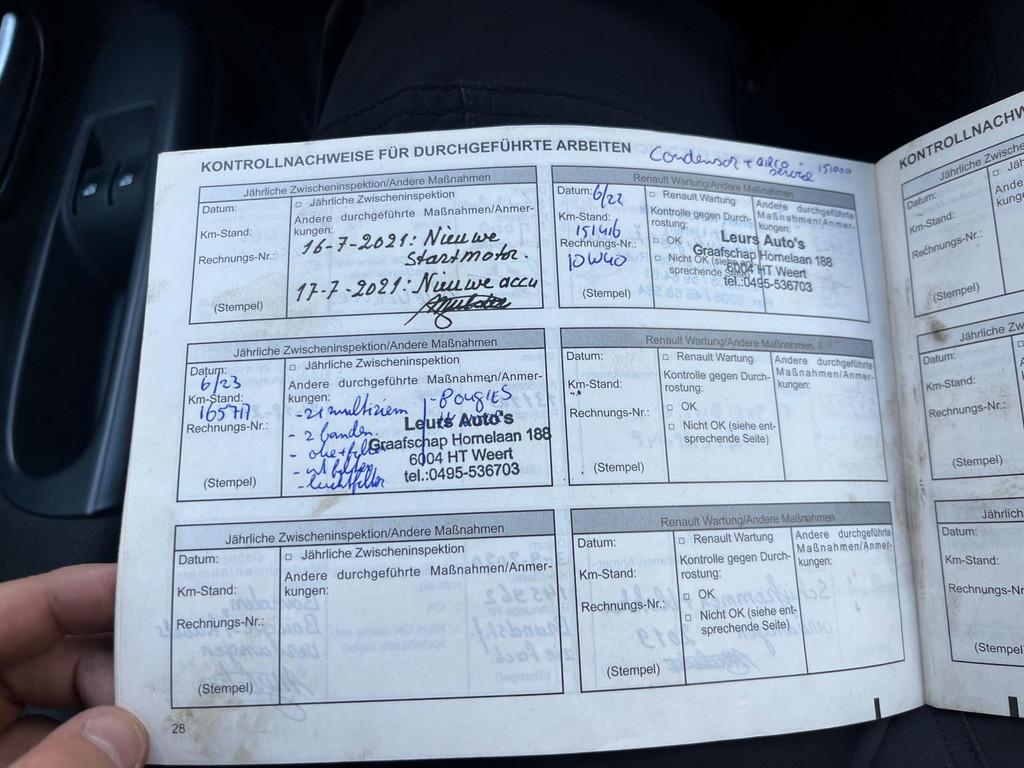 KONTROLLNACHWEISE FÜR DURCHGEFÜHRTE ARBEITEN
Condensor + airco service - 151000
Jährliche Zwischeninspektion/Andere Maßnahmen
Datum:
□ Jährliche Zwischeninspektion
Km-Stand:
Andere durchgeführte Maßnahmen/Anmer-
kungen:
Rechnungs-Nr.:
16-7-2021: Nieuwe
Startmotor.
17-7-2021: Nieuwe accu
(Stempel)
Renault Wartung/Andere Maßnahmen
Datum:
6/22
Km-Stand:
151416
Rechnungs-Nr.:
10W40
(Stempel)
□ Renault Wartung
Kontrolle gegen Durch-
rostung:
□ OK
□ Nicht OK (siehe ent-
sprechende Seite)
Andere durchgeführte
Maßnahmen/Anmer-
kungen:
Leurs Auto's
Graafschap Hornelaan 188
6004 HT Weert
tel.:0495-536703
Jährliche Zwischeninspektion/Andere Maßnahmen
Datum:
6/23
Km-Stand:
165717
Rechnungs-Nr.:
(Stempel)
□ Jährliche Zwischeninspektion
Andere durchgeführte Maßnahmen/Anmer-
kungen:
- BOUGIES
- 2x multiriem
- 2 banden
- olie+filter
- int filter
- luchtfilter
Leurs Auto's
Graafschap Hornelaan 188
6004 HT Weert
tel.:0495-536703
Renault Wartung/Andere Maßnahmen
Datum:
Km-Stand:
Rechnungs-Nr.:
(Stempel)
□ Renault Wartung
Kontrolle gegen Durch-
rostung:
□ OK
□ Nicht OK (siehe ent-
sprechende Seite)
Andere durchgeführte
Maßnahmen/Anmer-
kungen:
Jährliche Zwischeninspektion/Andere Maßnahmen
Datum:
Km-Stand:
Rechnungs-Nr.:
(Stempel)
□ Jährliche Zwischeninspektion
Andere durchgeführte Maßnahmen/Anmer-
kungen:
Renault Wartung/Andere Maßnahmen
Datum:
Km-Stand:
Rechnungs-Nr.:
(Stempel)
□ Renault Wartung
Kontrolle gegen Durch-
rostung:
□ OK
□ Nicht OK (siehe ent-
sprechende Seite)
Andere durchgeführte
Maßnahmen/Anmer-
kungen:
28
KONTROLLNACHW
Jährliche Zwische
Datum:
Km-Stand:
Rechnungs-Nr.:
(Stempel)
Jährliche Zw
Datum:
Km-Stand:
Rechnungs-Nr.:
(Stempel)
Jährlich
Datum:
Km-Stand:
Rechnungs-N
(Stempel